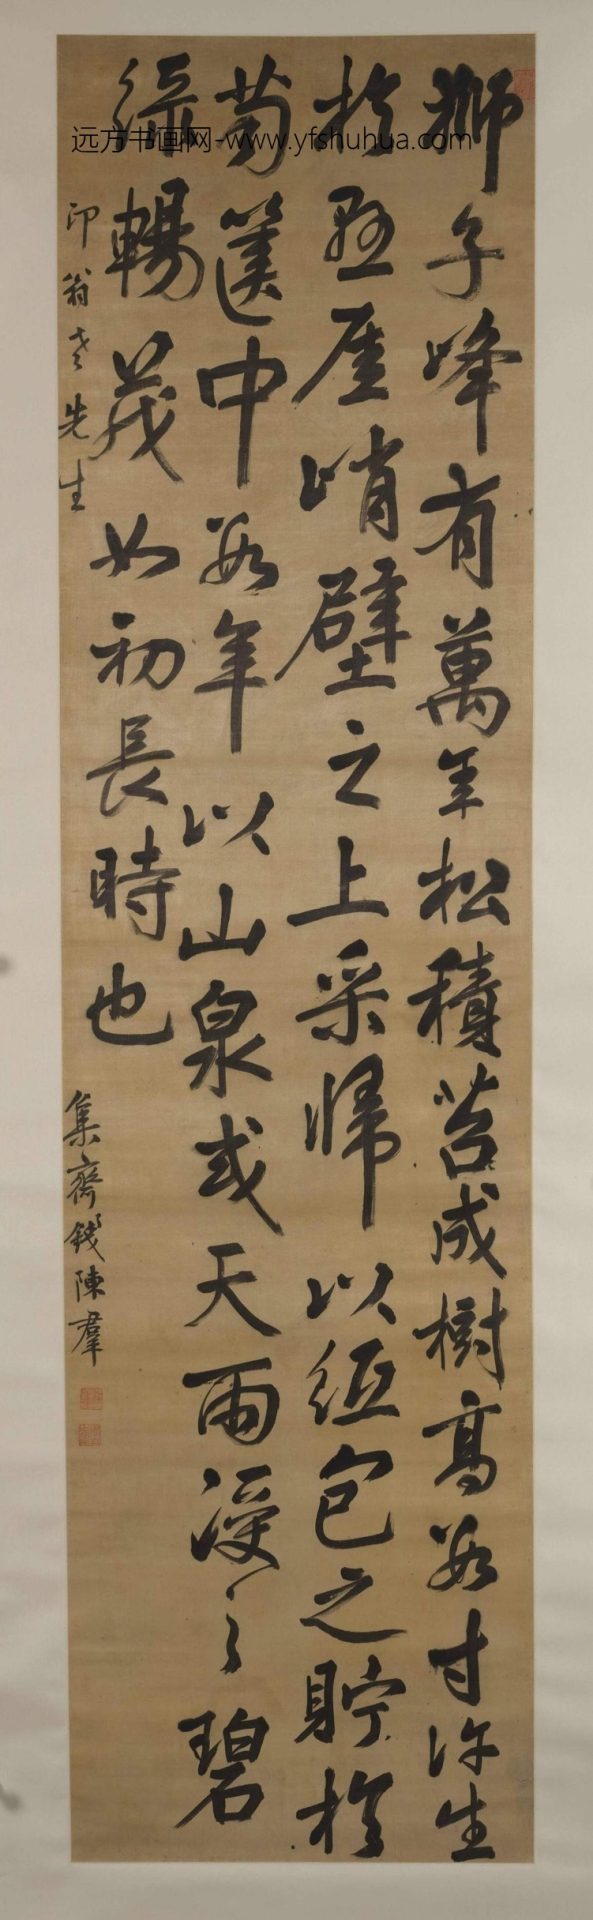 獅子峰有萬年松積苔成樹高數寸許生
於懸厓峭壁之上采歸以紙包之貯於
箱篋中數年以山泉或天雨浸之碧
綠暢茂如初長時也
印翁老先生
集齋錢陳羣
远方书画网-www.yfshuhua.com